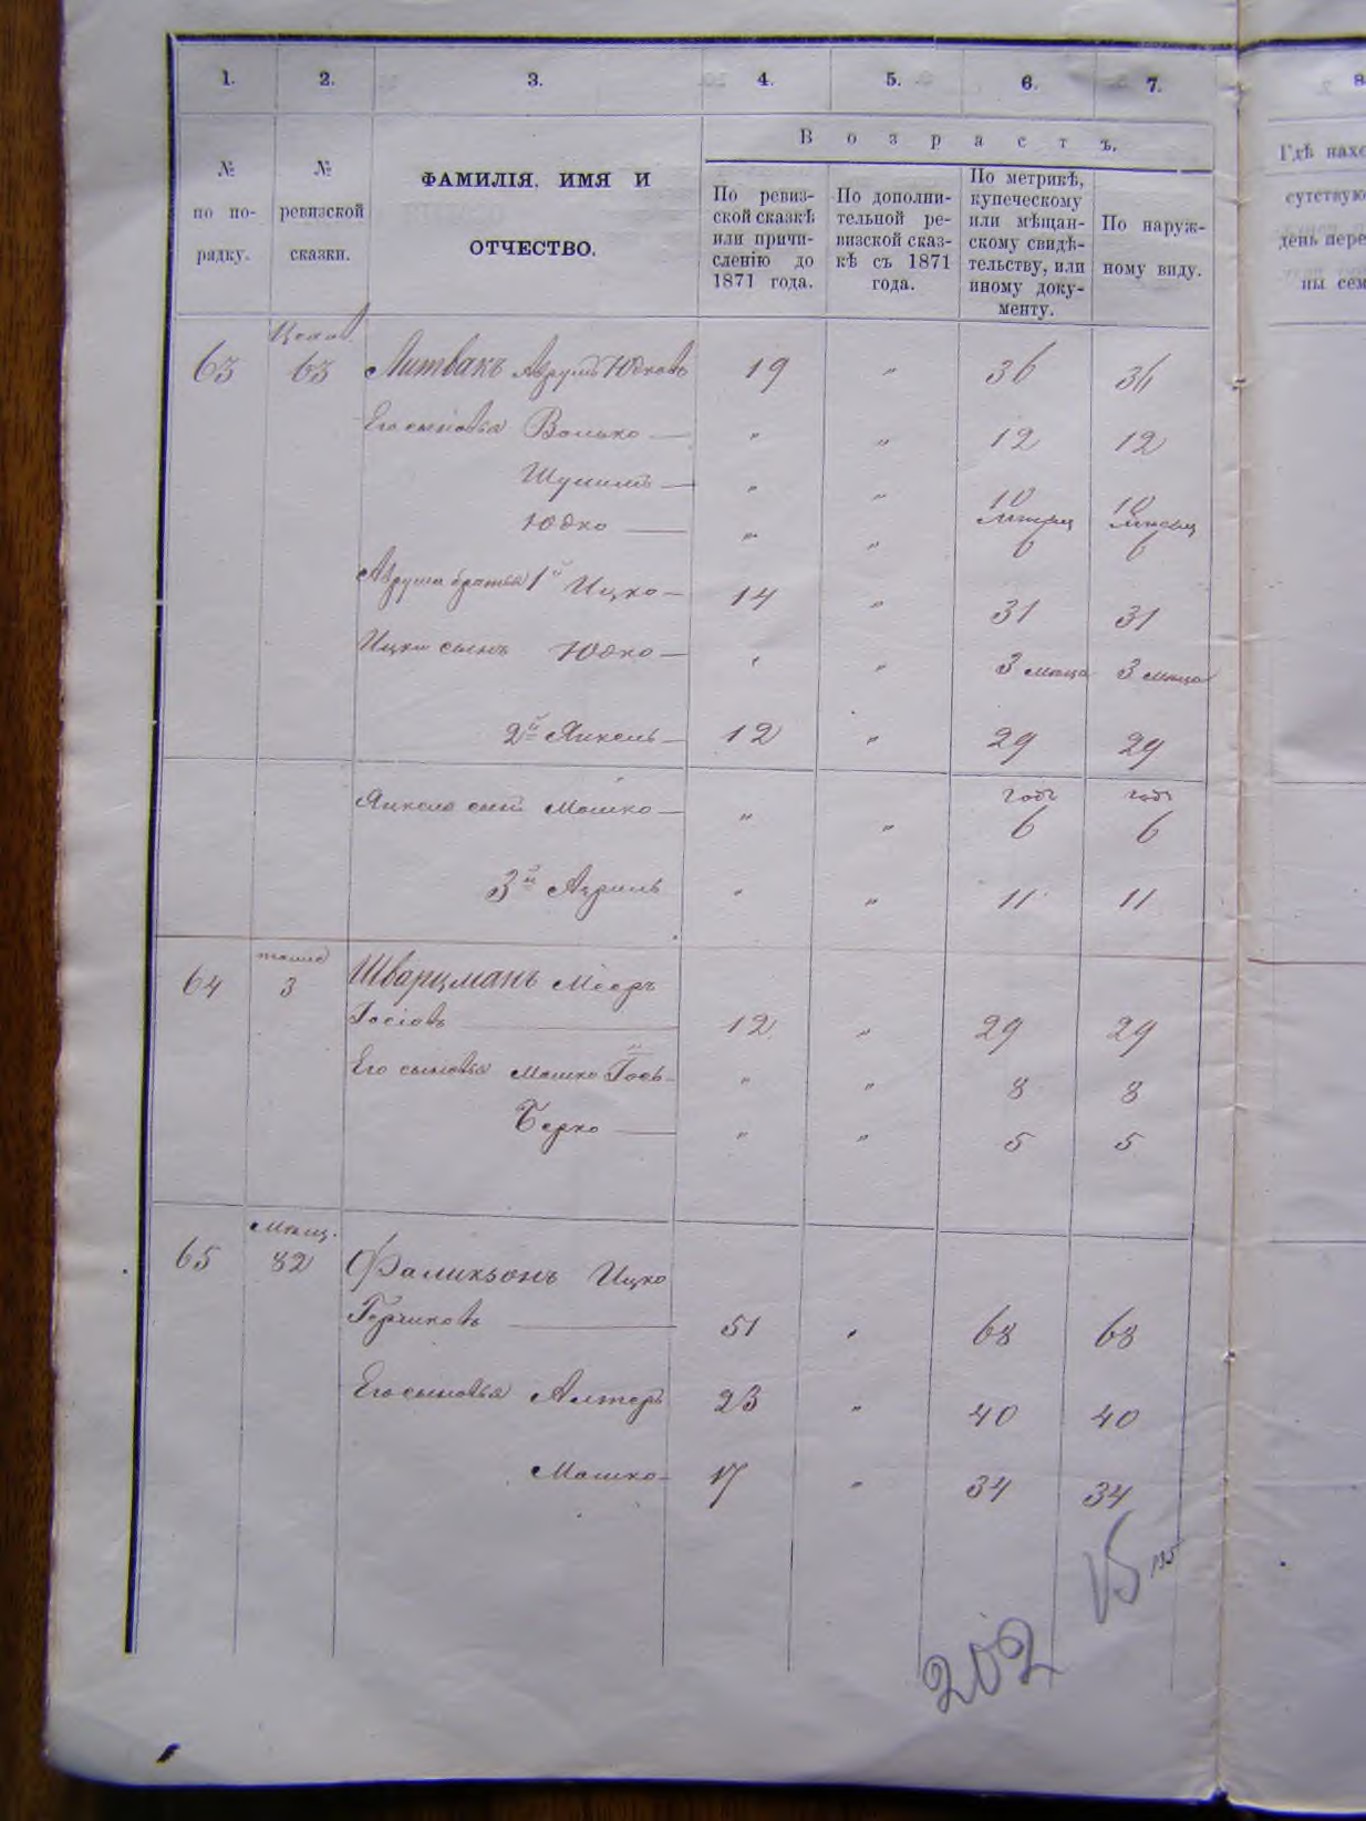 1. 2. 3. 4. 5. 6. 7. 8
Возрастъ.
№ по по-рядку.
№ ревизской сказки.
ФАМИЛІЯ, ИМЯ И
ОТЧЕСТВО.
По ревиз-
ской сказкѣ
или причи-
сленію до
1871 года.
По дополни-
тельной ре-
визской сказ-
кѣ съ 1871
года.
По метрикѣ,
купеческому
или мѣщан-
скому свидѣ-
тельству, или
иному доку-
менту.
По наруж-
ному виду.
Гдѣ нахо
сутствую
день пере
ны сем
63 63 Литвакъ Аврумъ Юдковъ 19 " 36 36
Его сыновья Волько — " " 12 12
Шулимъ — " " 10 10
Юдко — " " 6 6
Аврума братья 1й Ицко — 14 " 31 31
Ицки сынъ Юдко — " " 3 мѣсца 3 мѣсца
2й Янкель — 12 " 29 29
Янкеля сынъ Мошко — " " годъ 6 годъ 6
3й Азриль " " 11 11
64 3 Шварцманъ Мееръ
Іосіовъ — 12 " 29 29
Его сыновья Мошко Іось — " " 8 8
Берко — " " 5 5
мѣщ.
65 82 Фаликзонъ Ицко
Гершковъ — 51 " 68 68
Его сыновья Алтеръ 23 " 40 40
Мошко — 17 " 34 34
15
202